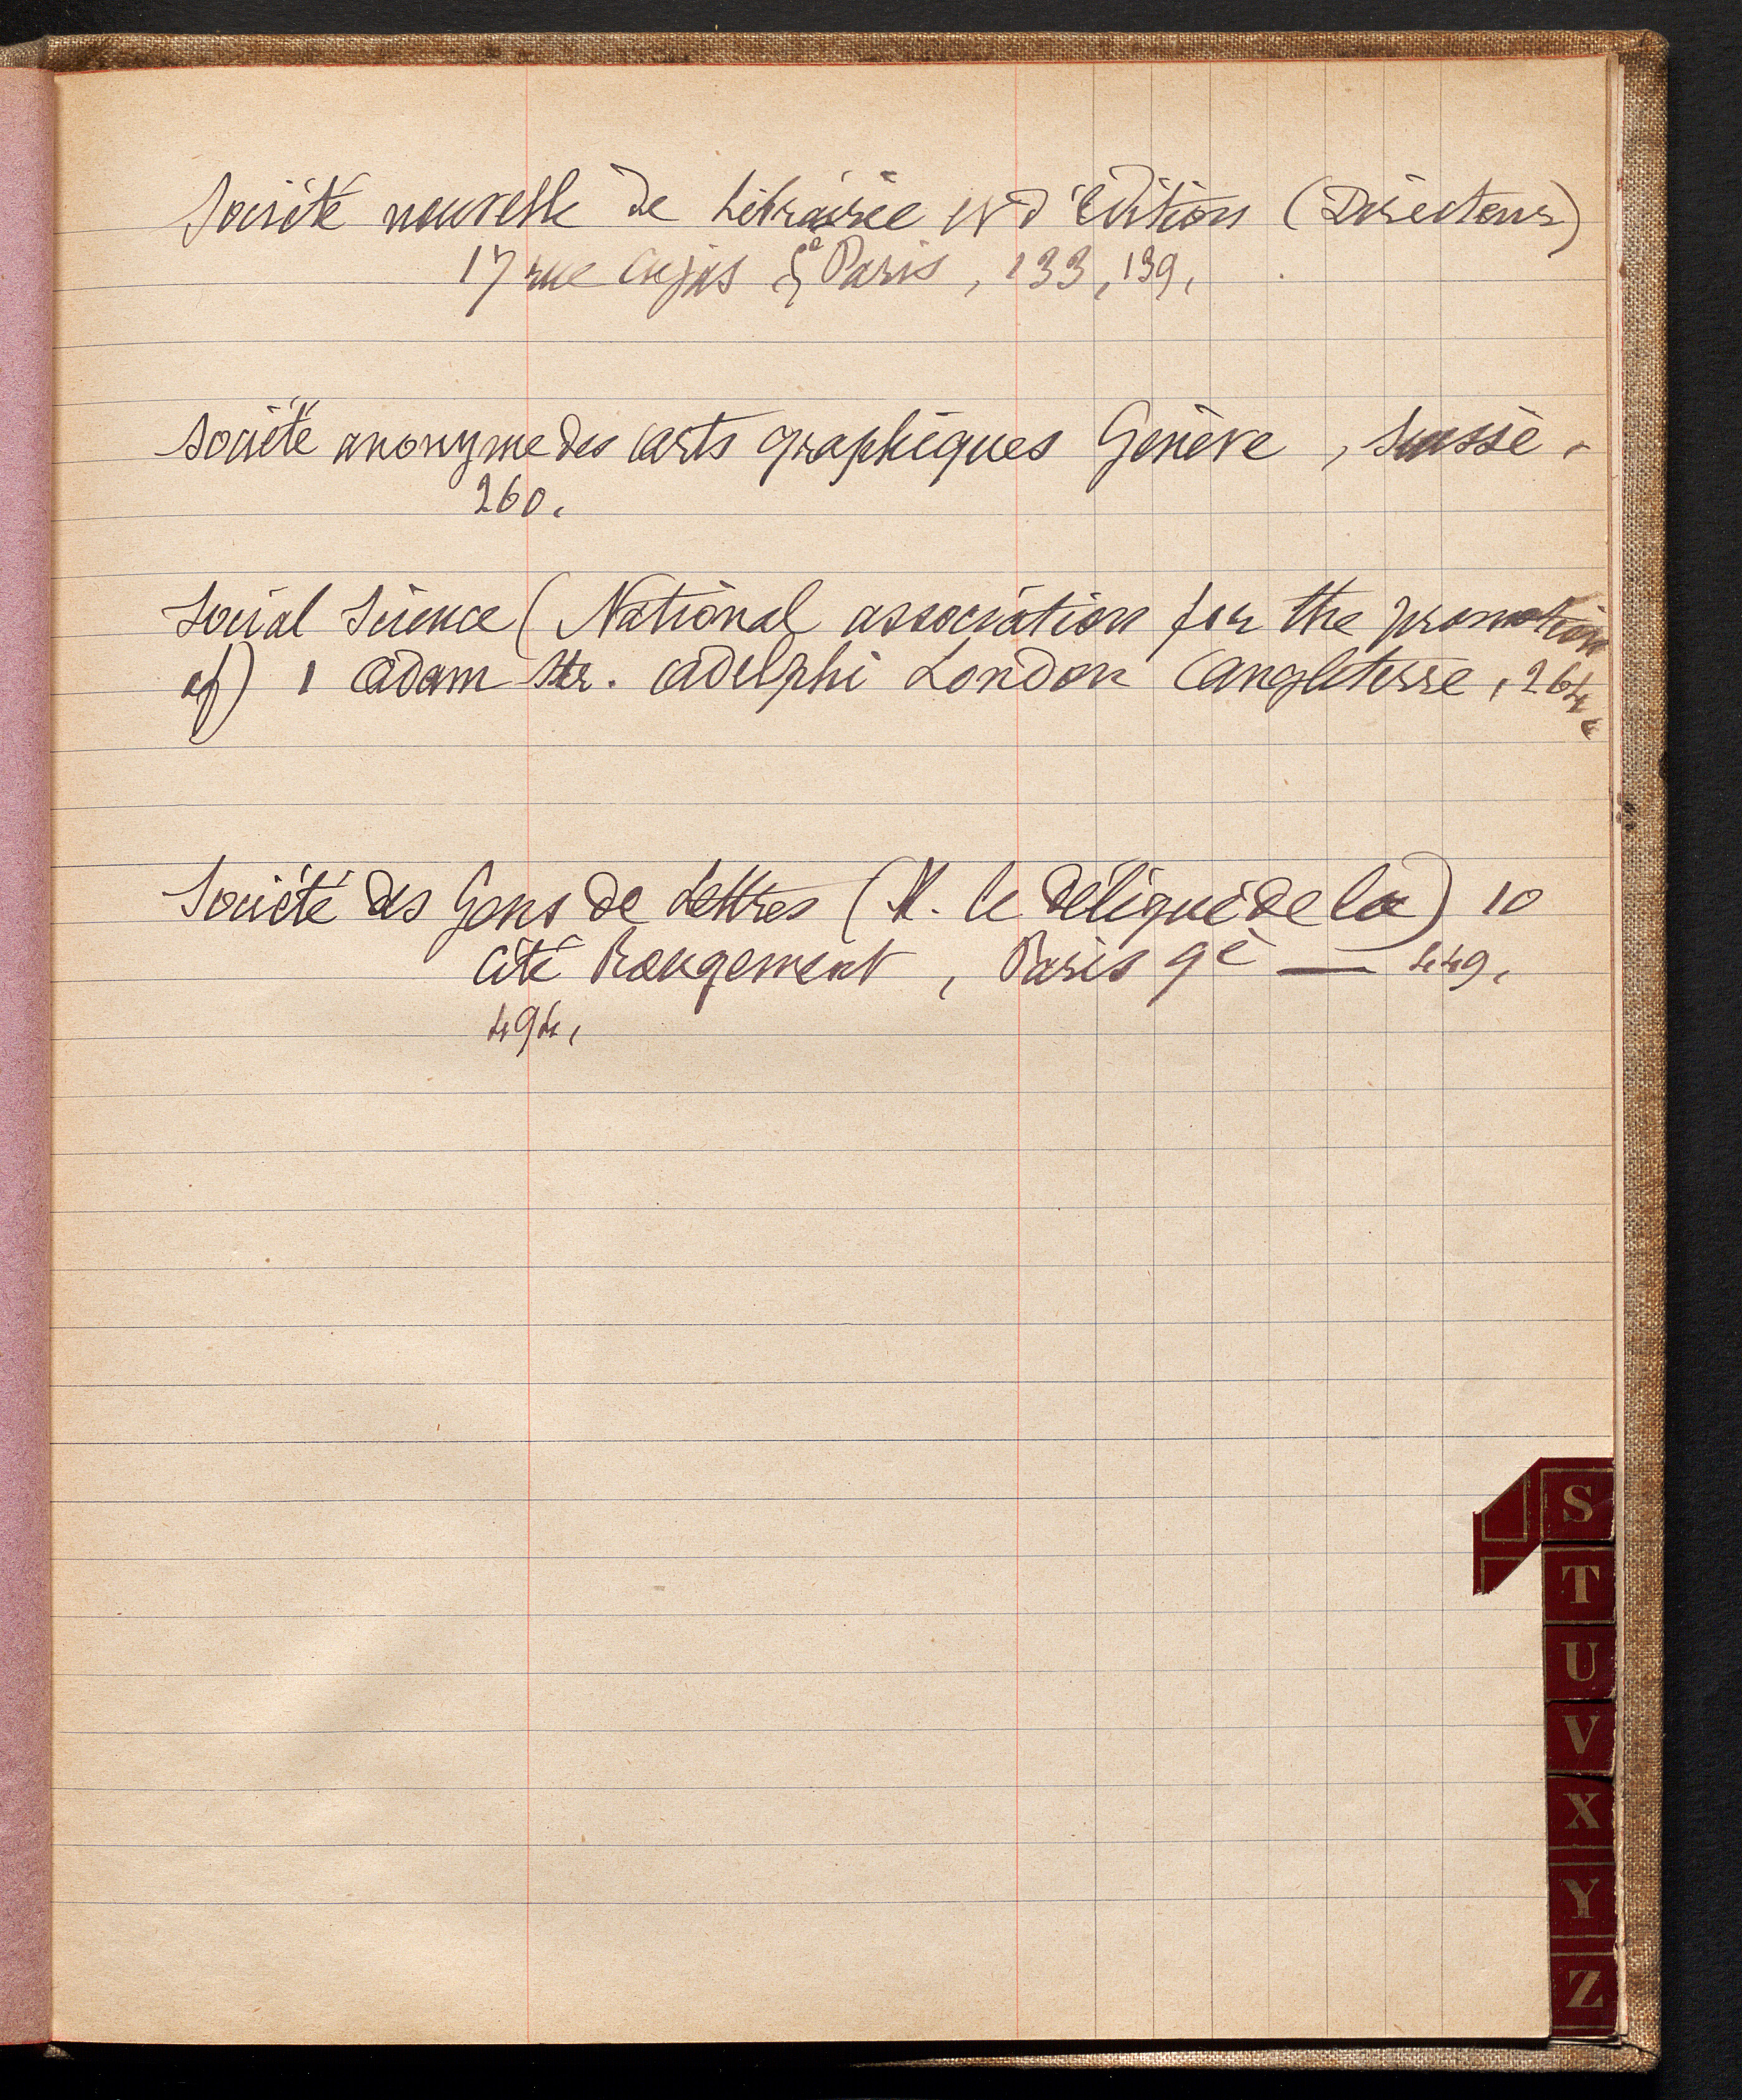 Société nouvelle de Librairie et d'Edition (Directeur)
17 rue Cujas 5e Paris, 133, 139,
Société anonyme des arts graphiques Genève, Suisse.
260.
Social Science (National association for the promotion
of) 1 Adam Str. Adelphi London Angleterre, 264,
Société des Gens de Lettres (M. le délégué de la) 10
cité Rougemont, Paris 9e — 449,
494,
S
T
U
V
X
Y
Z